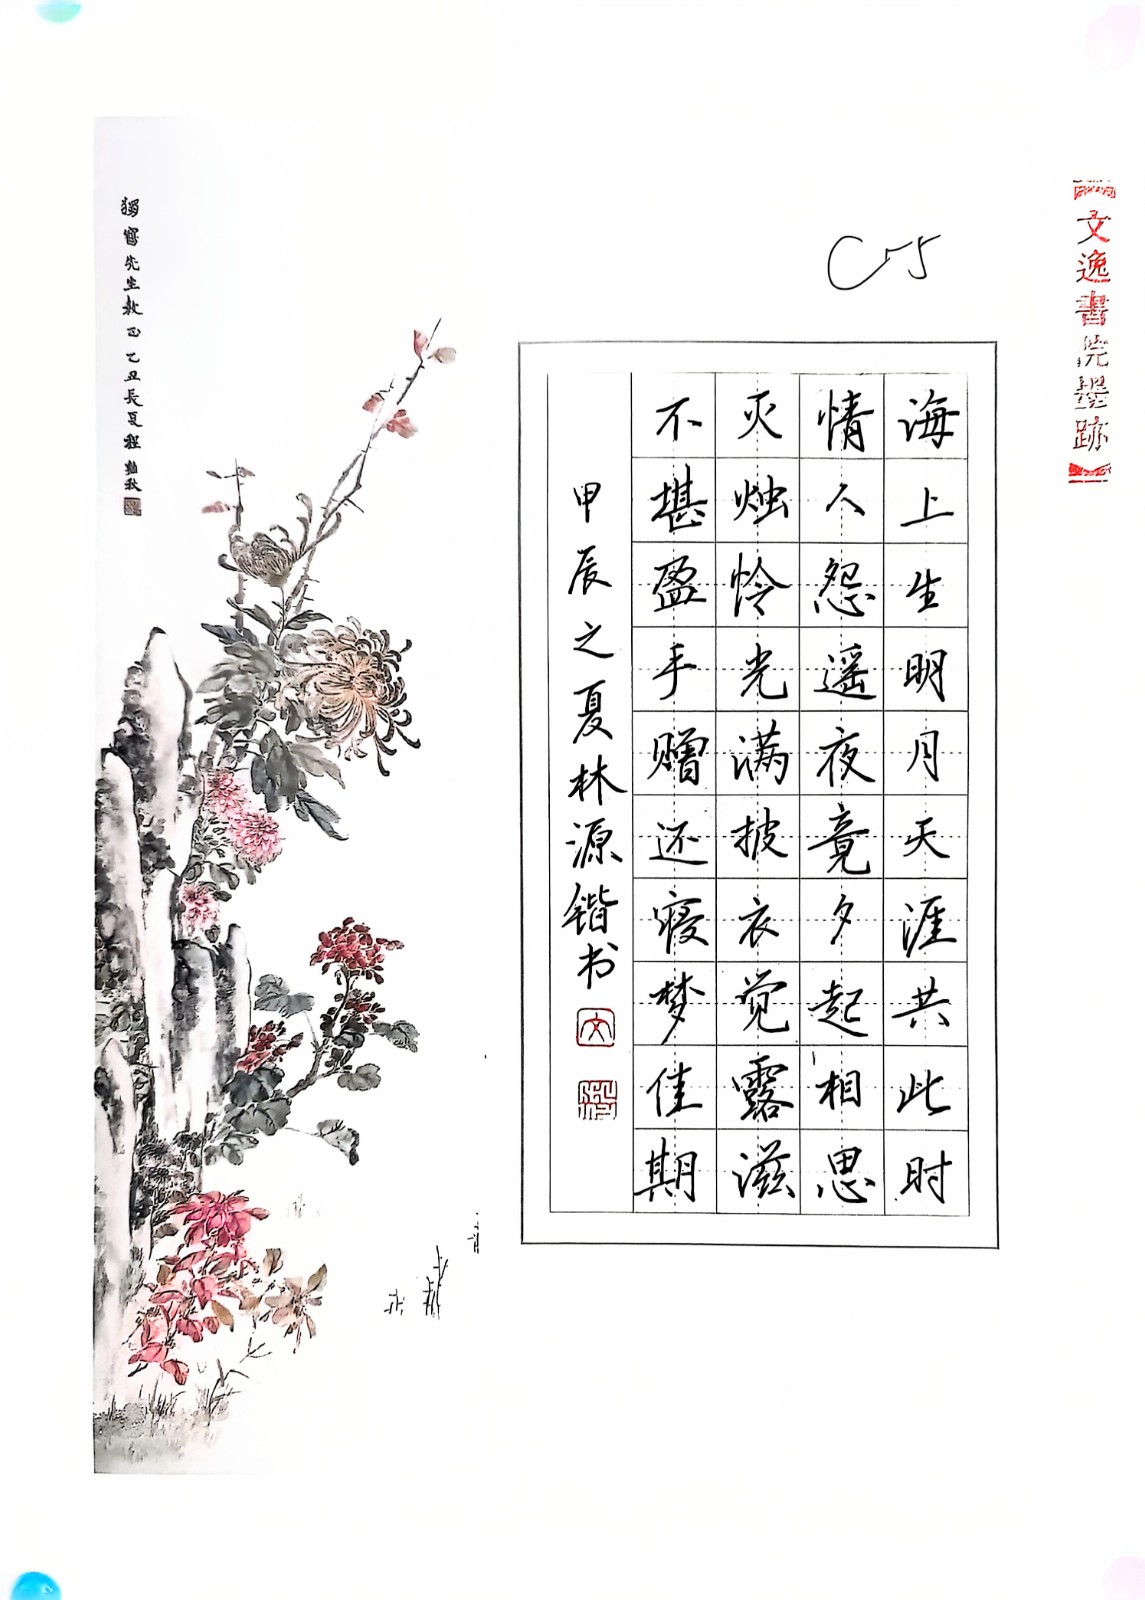 【文逸書院墨跡】
C15
海上生明月天涯共此时
情人怨遥夜竟夕起相思
灭烛怜光满披衣觉露滋
不堪盈手赠还寝梦佳期
甲辰之夏林源锴书
文
先生教正乙丑長夏程